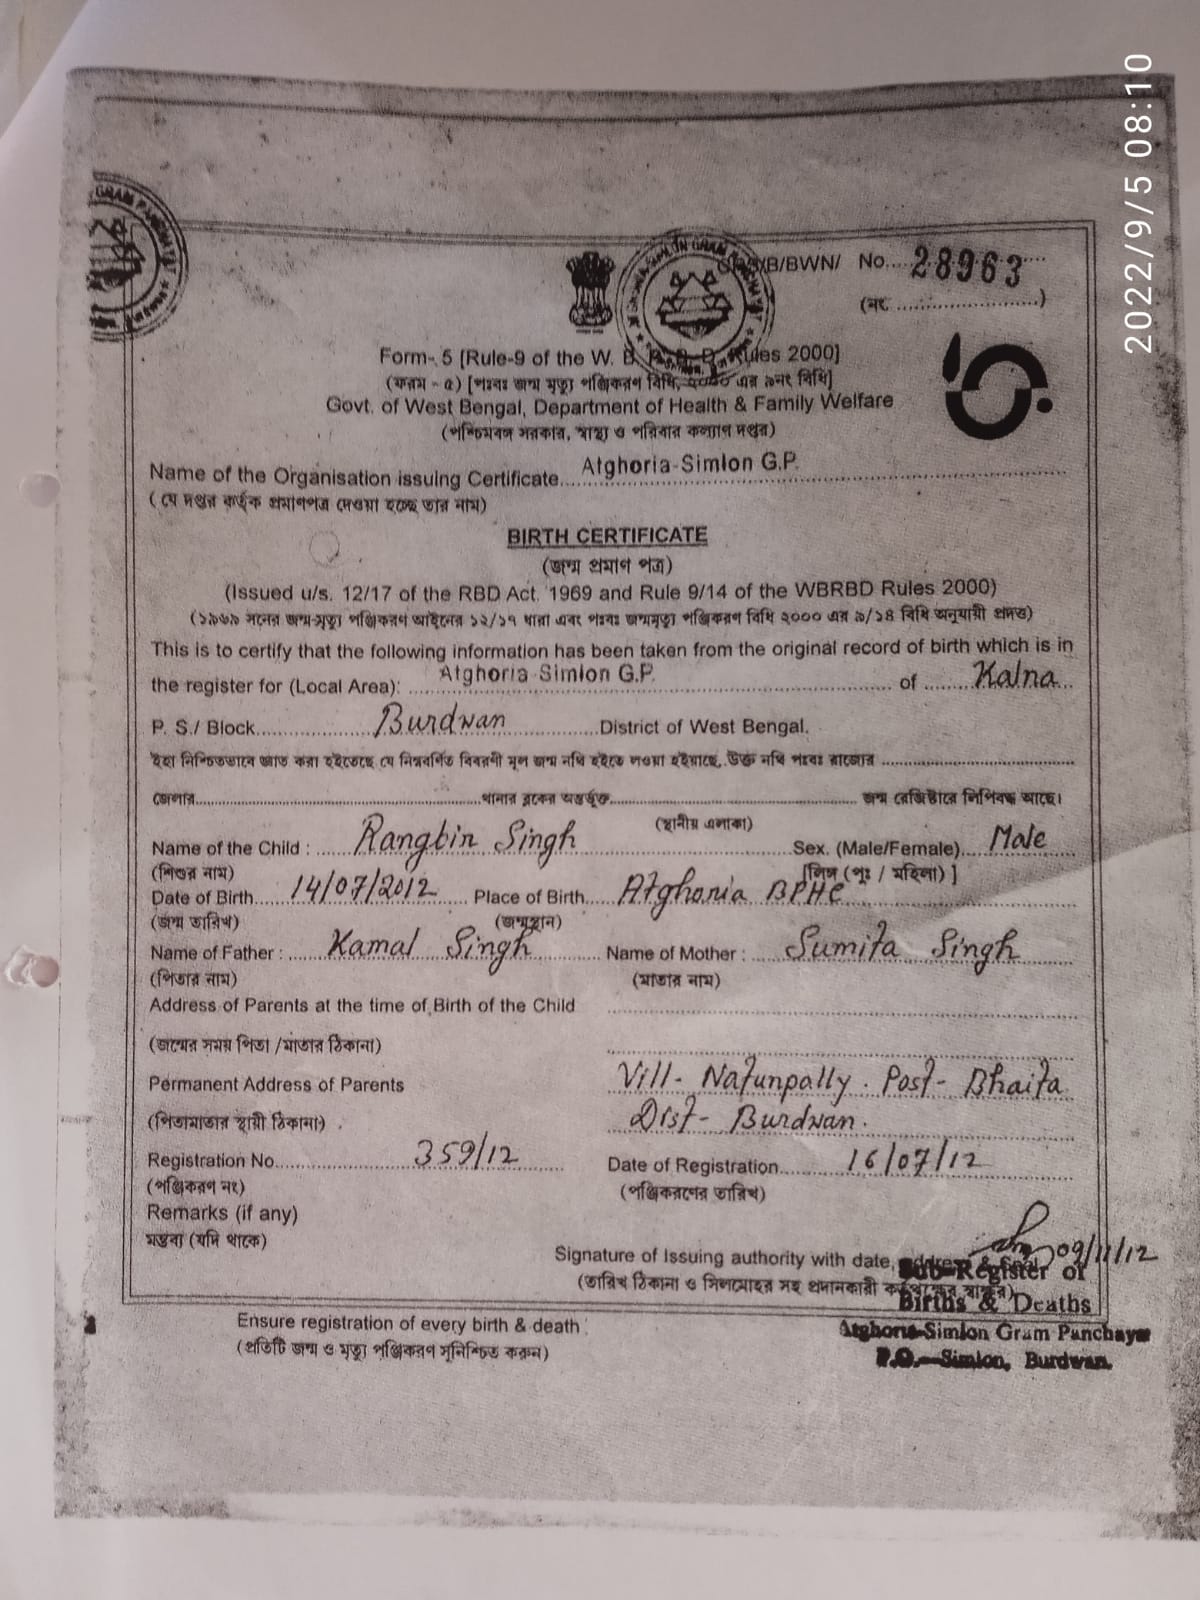 2022/9/5 08:10
GRAM PANCHAYAT
B/BWN/ No. 28963
(নং ....................)
Form- 5 [Rule-9 of the W. B. R. B. D. Rules 2000]
(ফরম - ৫) [পঃবঃ জন্ম মৃত্যু পঞ্জিকরণ বিধি, ২০০০ এর ৯নং বিধি]
Govt. of West Bengal, Department of Health & Family Welfare
(পশ্চিমবঙ্গ সরকার, স্বাস্থ্য ও পরিবার কল্যাণ দপ্তর)
Name of the Organisation issuing Certificate.... Atghoria-Simlon G.P.
( যে দপ্তর কর্তৃক প্রমাণপত্র দেওয়া হচ্ছে তার নাম)
BIRTH CERTIFICATE
(জন্ম প্রমাণ পত্র)
(Issued u/s. 12/17 of the RBD Act, 1969 and Rule 9/14 of the WBRBD Rules 2000)
(১৯৬৯ সনের জন্ম-মৃত্যু পঞ্জিকরণ আইনের ১২/১৭ ধারা এবং পঃবঃ জন্মমৃত্যু পঞ্জিকরণ বিধি ২০০০ এর ৯/১৪ বিধি অনুযায়ী প্রদত্ত)
This is to certify that the following information has been taken from the original record of birth which is in
the register for (Local Area): Atghoria-Simlon G.P. of Kalna
P. S./ Block Burdwan District of West Bengal.
ইহা নিশ্চিতভাবে জ্ঞাত করা হইতেছে যে নিম্নবর্ণিত বিবরণী মূল জন্ম নথি হইতে লওয়া হইয়াছে, উক্ত নথি পঃবঃ রাজ্যের
জেলার থানার ব্লকের অন্তর্ভূক্ত জন্ম রেজিষ্টারে লিপিবদ্ধ আছে।
(স্থানীয় এলাকা)
Name of the Child : Rangbin Singh Sex. (Male/Female) Male
(শিশুর নাম) [লিঙ্গ (পুঃ / মহিলা) ]
Date of Birth 14/07/2012 Place of Birth Atghoria BPHC
(জন্ম তারিখ) (জন্মস্থান)
Name of Father : Kamal Singh Name of Mother : Sumita Singh
(পিতার নাম) (মাতার নাম)
Address of Parents at the time of Birth of the Child
(জন্মের সময় পিতা /মাতার ঠিকানা)
Permanent Address of Parents Vill- Natunpally. Post- Bhaita
(পিতামাতার স্থায়ী ঠিকানা) Dist- Burdwan.
Registration No. 359/12 Date of Registration 16/07/12
(পঞ্জিকরণ নং) (পঞ্জিকরণের তারিখ)
Remarks (if any)
মন্তব্য (যদি থাকে)
09/11/12
Signature of Issuing authority with date, address & Seal
(তারিখ ঠিকানা ও সিলমোহর সহ প্রদানকারী কর্তৃপক্ষের স্বাক্ষর)
Sub-Register of
Births & Deaths
Atghoria-Simlon Gram Panchayat
P.O.—Simlon, Burdwan.
Ensure registration of every birth & death
(প্রতিটি জন্ম ও মৃত্যু পঞ্জিকরণ সুনিশ্চিত করুন)